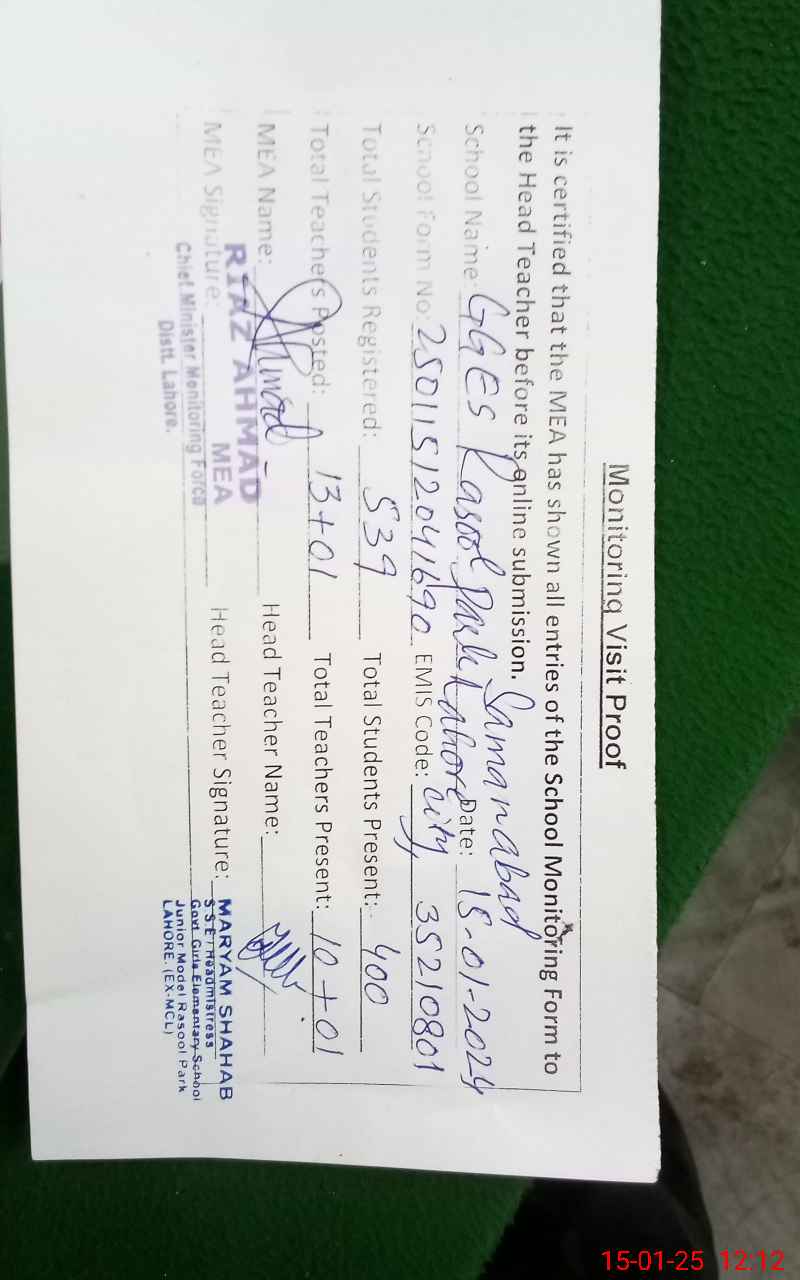 Monitoring Visit Proof
It is certified that the MEA has shown all entries of the School Monitoring Form to
the Head Teacher before its online submission.
Samanabad
School Name: GGES Rasool Park Lahore City Date: 15-01-2024
School Form No: 25011512041690 EMIS Code: 35210801
Total Students Registered: 539 Total Students Present: 400
Total Teachers Posted: 13+01 Total Teachers Present: 10+01
MEA Name: Ahmad Head Teacher Name:
MEA Signature: Head Teacher Signature:
RIAZ AHMAD
MEA
Chief Minister Monitoring Force
Distt. Lahore.
MARYAM SHAHAB
S S E / Headmistress
Govt Girls Elementary School
Junior Model Rasool Park
LAHORE. (EX-MCL)
15-01-25 12:12